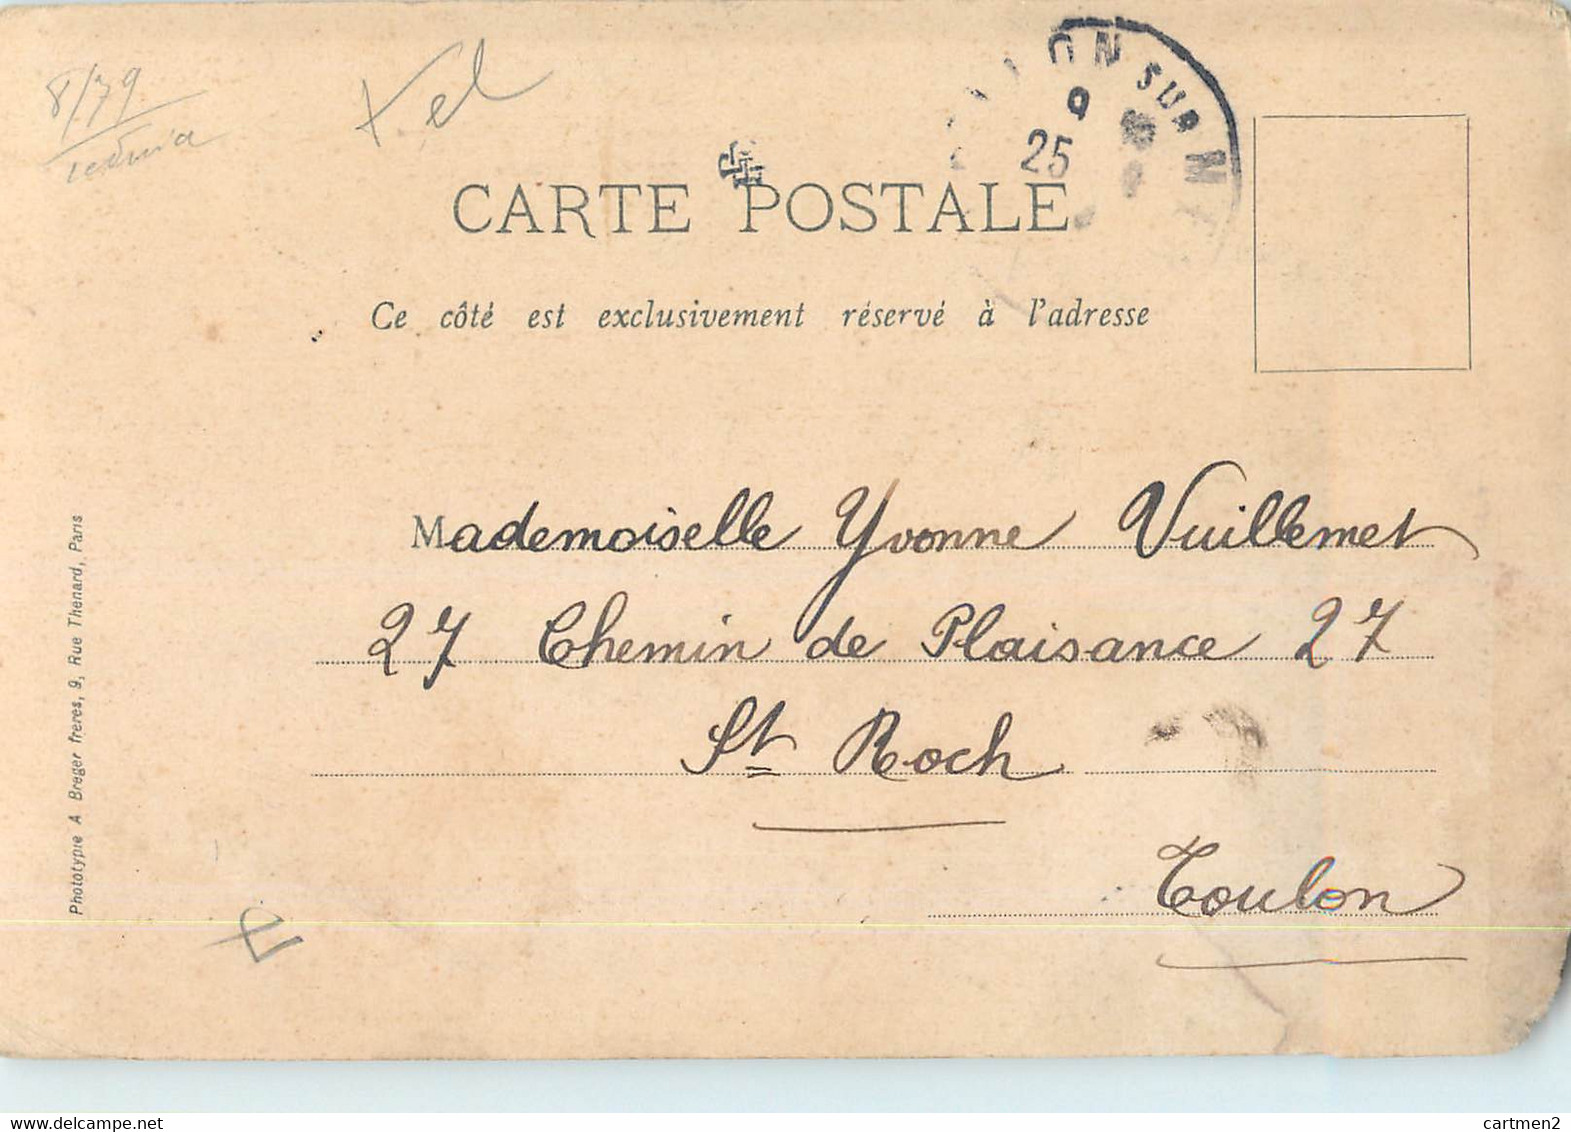 8/79
CARTE POSTALE
ON SUR M
9
25
Ce côté est exclusivement réservé à l'adresse
Mademoiselle Yvonne Vuillemet
27 Chemin de Plaisance 27
St Roch
Toulon
Phototypie A Breger freres, 9, Rue Thenard, Paris
cartmen2